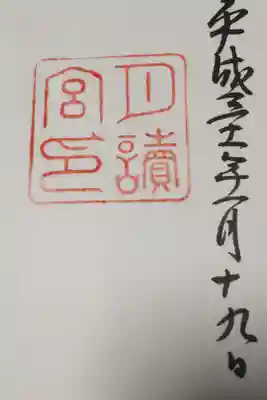 平成三十一年一月十九日
月讀
宮印